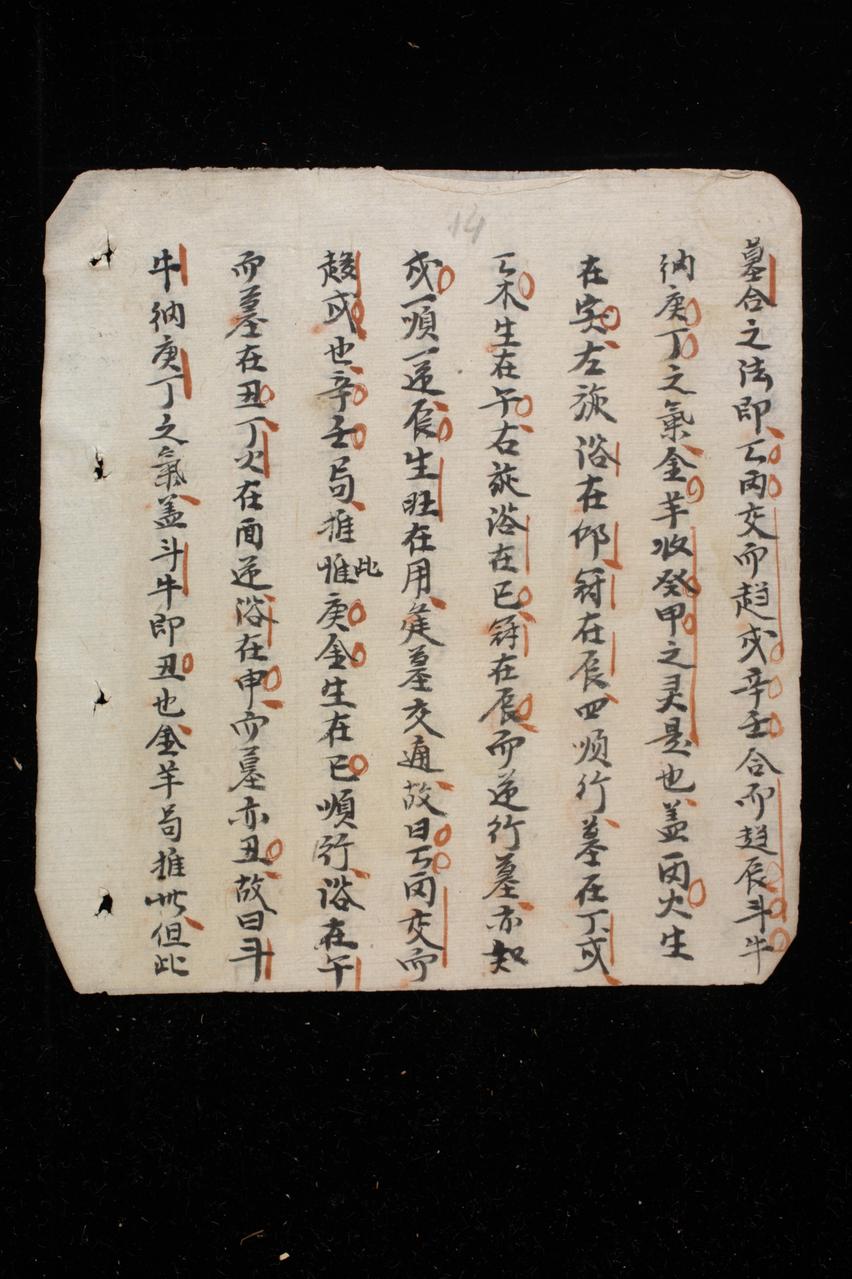 14
墓合之法即乙丙交而趋戍辛壬合而趋辰斗牛
納庚丁之氣金羊收癸甲之灵是也盖丙火生
在寅左旋浴在卯冠在辰四順行墓在丁戍
乙木生在午右旋浴在巳冠在辰而逆行墓亦知
戍一順一逆辰生旺在用墓交通故曰乙丙交而
趍戍也辛壬局推惟此庚金生在巳順行浴在午
而墓在丑丁火在面逆浴在申而墓亦丑故曰斗
牛納庚丁之氣盖斗牛即丑也金羊局推此但此